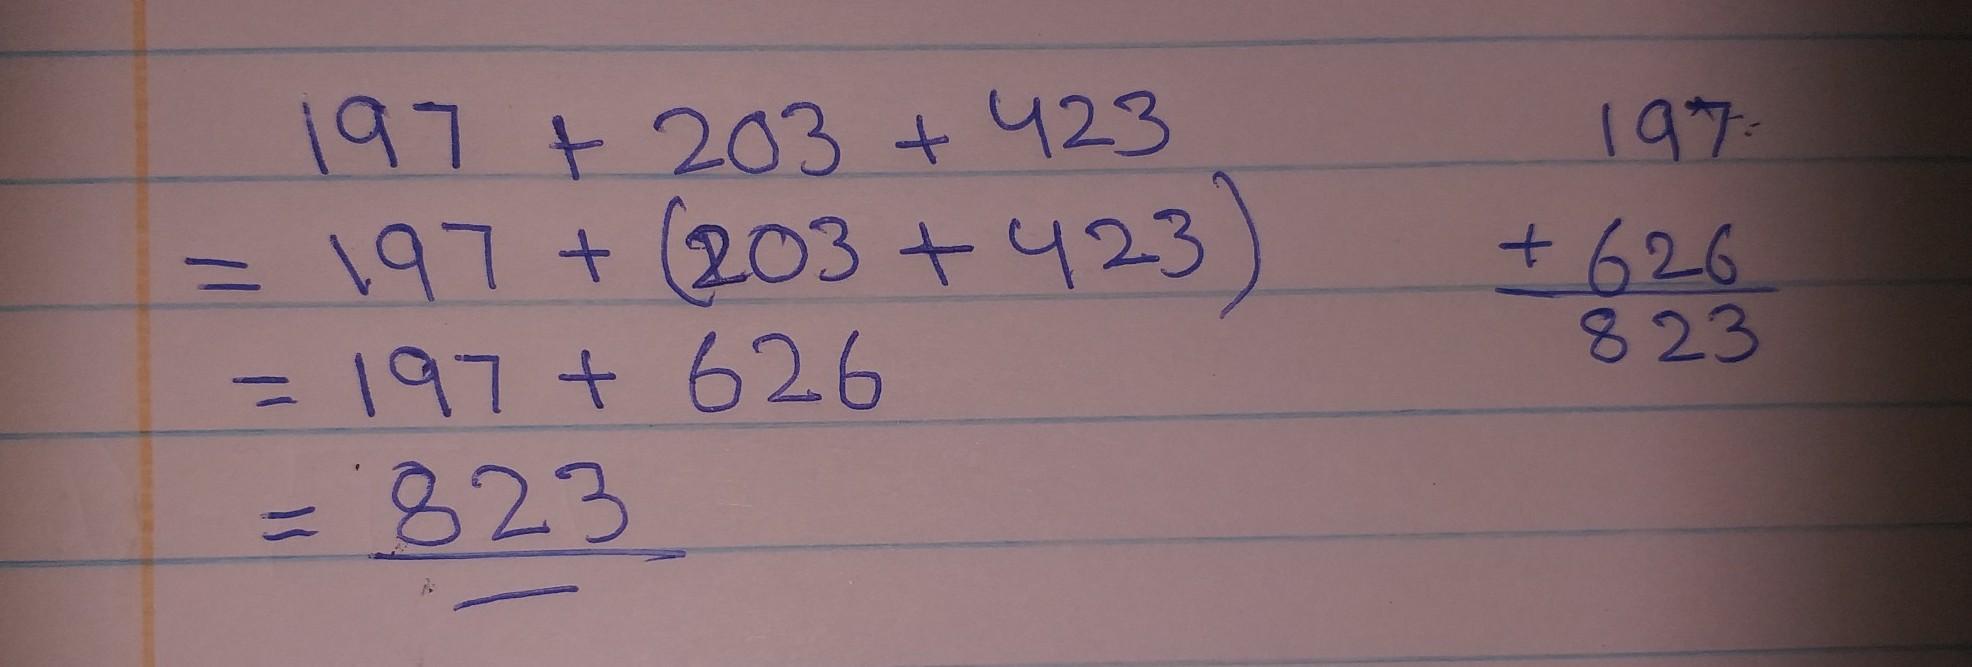 197 + 203 + 423
= 197 + (203 + 423)
= 197 + 626
= 823
197
+ 626
823